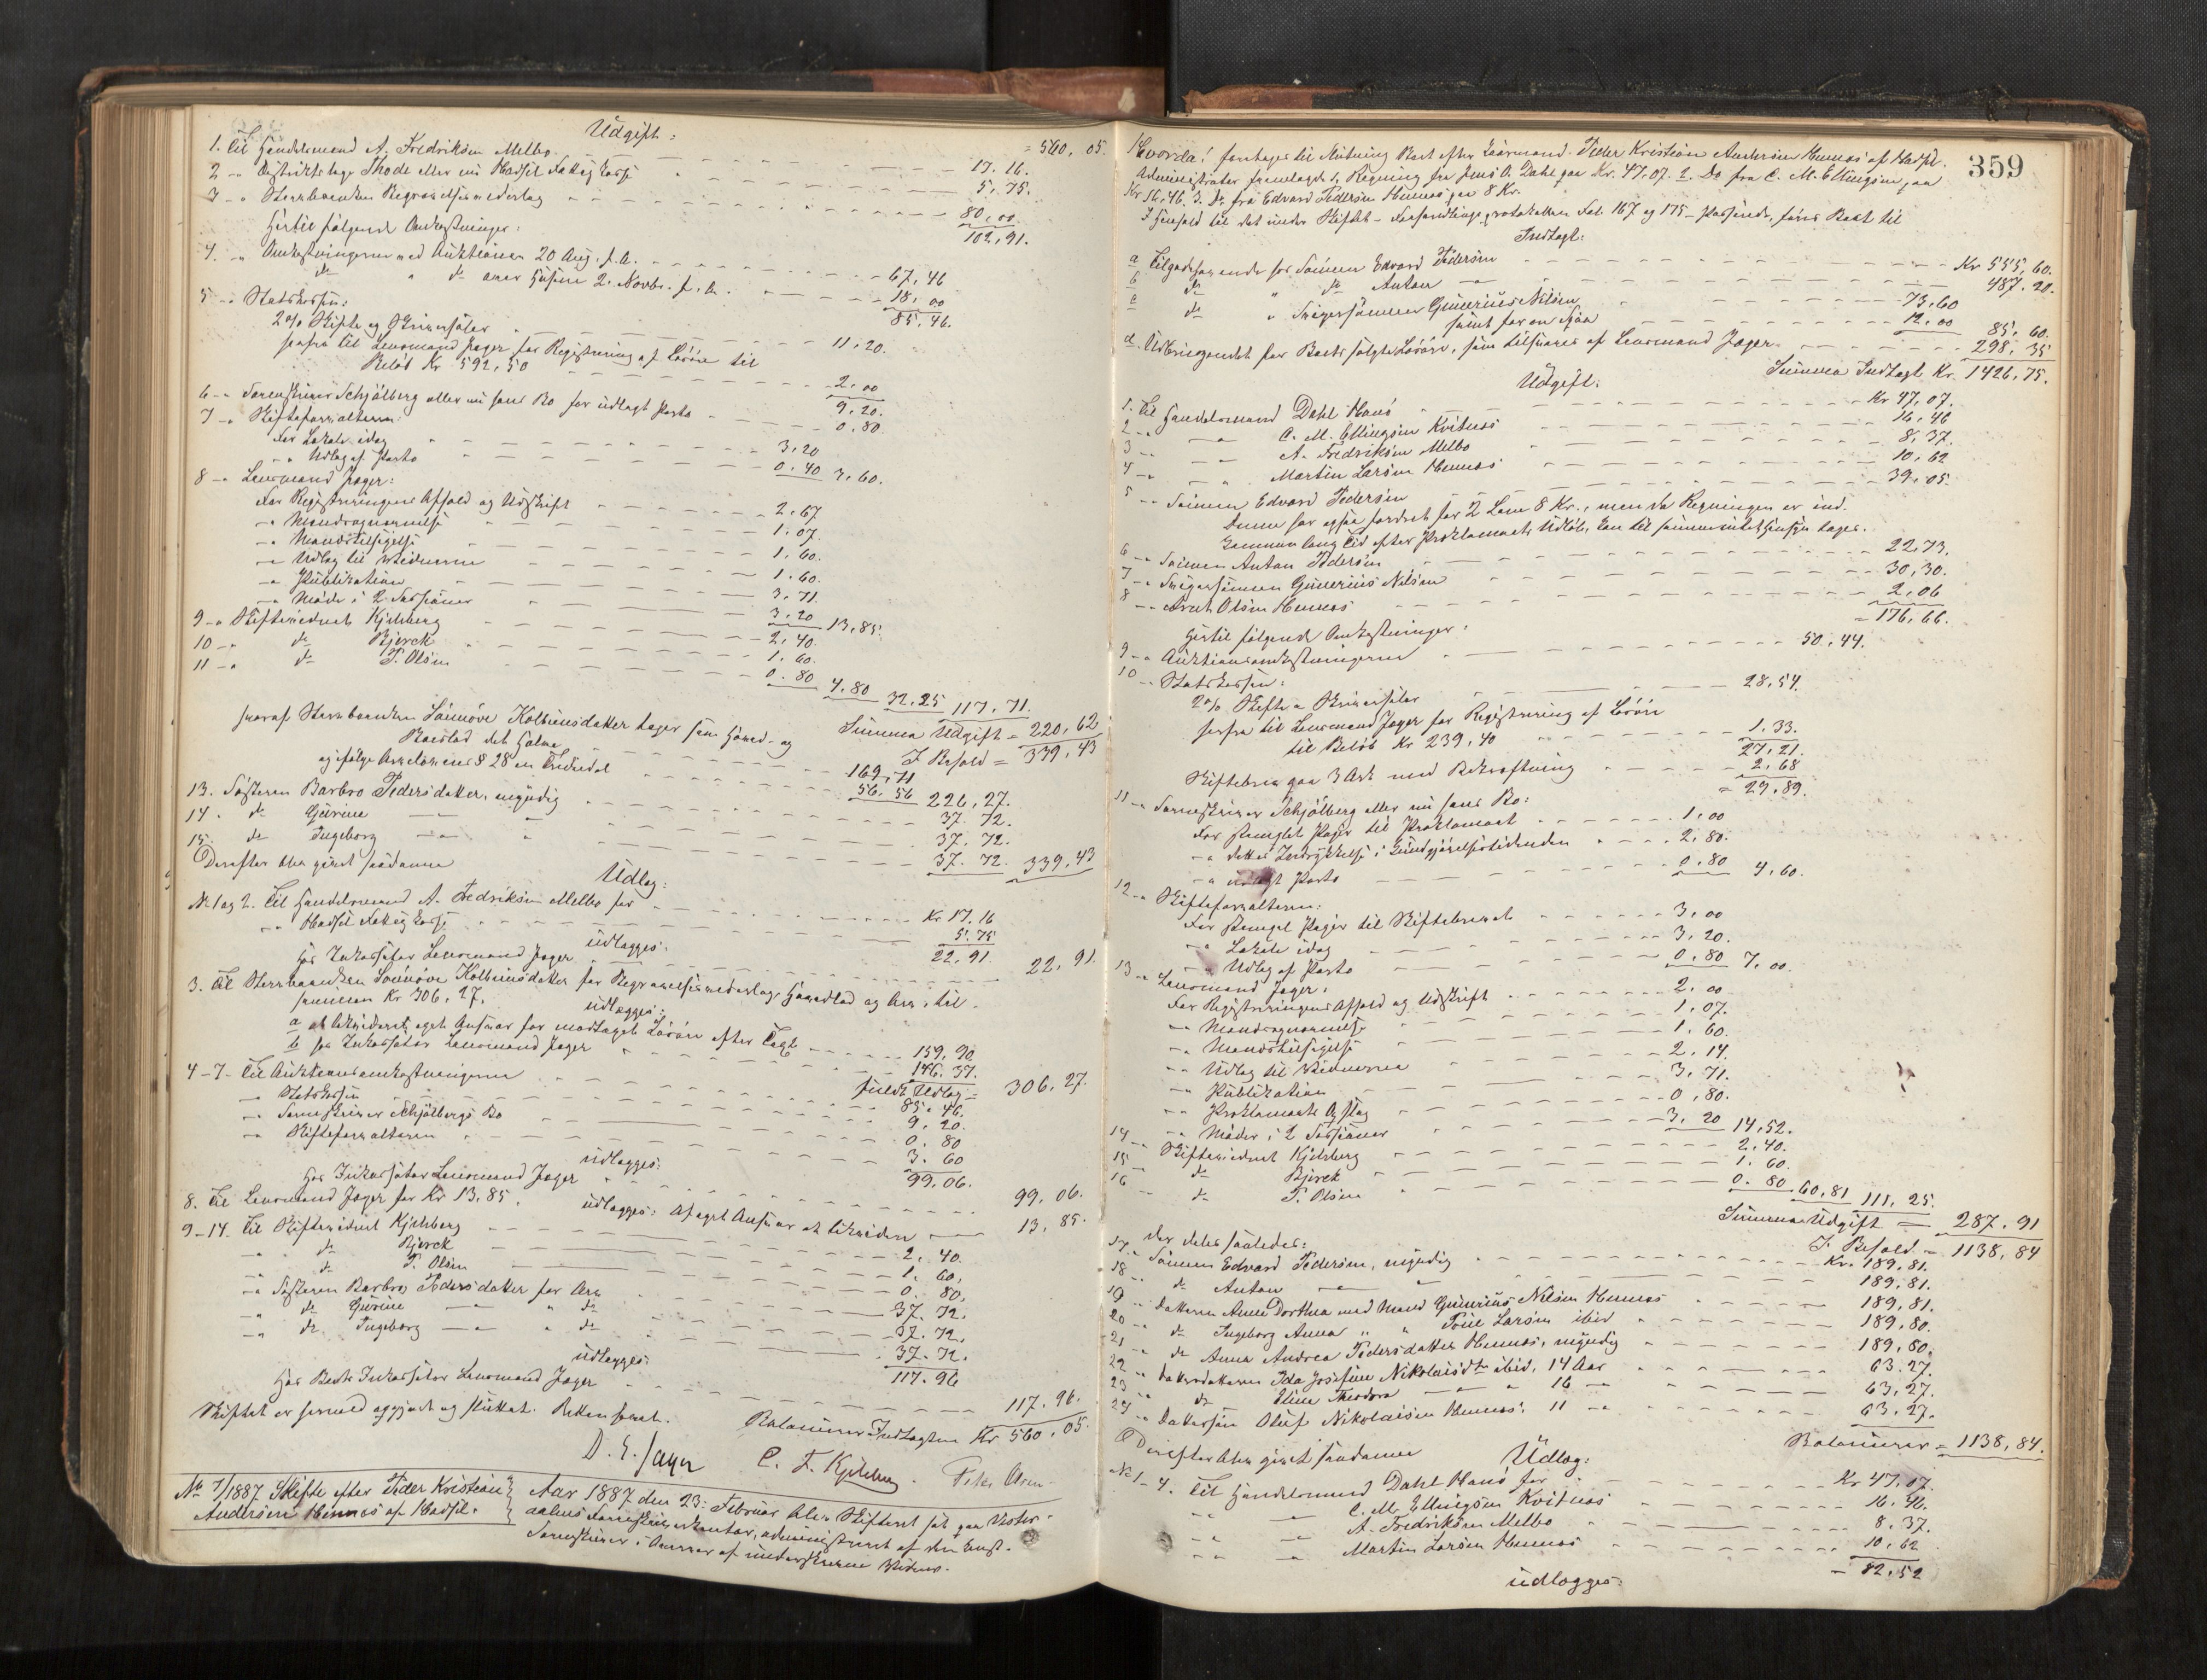 Udgift:
= 560,05.
1. Til Handelsmand A. Fredriksen Melbo 17.16.
2 " Distriktslæge Thode eller nu Hadsel Fattigkasse 5.75.
3 " Sterboenken Begravelsesvederlag 80,00
102,91.
Hertil følgende Omkostninger:
4. " Omkostningerne ved Auktionen 20 Aug. f. A. 67,46
do " do over Husene 2. Novbr. f. A. 18,00
85,46.
5 " Statskassen:
2% Skifte og Skriversalær 11,20.
herfra til Lensmand Jæger for Registrering af Løsøre til
Beløb Kr 592,50 2,00
9.20.
6 " Sorenskriver Schjølberg eller nu hans Bo for udlagt Porto 0.80
7 " Skifteforvalteren:
For Lokale idag 3,20
" Udlæg af Porto 0.40 3,60.
8 " Lensmand Jæger:
For Registreringens Afhold og Udskrift 2,67
" Mandsopnævnelse 1.07.
" Mandstilsigelse 1,60.
" Udlæg til Vidnerne 1.60.
" Publikation 3,71
" Møde i 2 Sessioner 3,20 13,85.
9 " Skiftevidnet Kjelsberg 2,40.
10 " do Bjerck 1.60.
11 " do P. Olsen 0.80 4,80 32,25 117,71.
Summa Udgift = 220,62
I Behold = 339,43
hvoraf Sterboenken Sønnøve Kolbensdatter tager som Hoved- og
Boeslod det Halve 169,71
og ifølge Arvelovens § 28 en Trediedel 56,56 226,27.
13. Søsteren Barbro Pedersdatter, myndig 37.72.
14. do Gurine " 37.72.
15. do Ingeborg " 37.72. 339,43
Derefter blev gjort saadanne
Udlæg:
No 1 og 2. Til Handelsmand A. Fredriksen Melbo for Kr. 17.16
" Hadsel Fattigkasse 5.75
22,91.
udlægges:
hos Inkassator Lensmand Jæger 22,91
3. Til Sterboenken Sønnøve Kolbensdatter for Begravelsesvederlag, Hovedlod og Arv, til-
sammen Kr 306,27.
udlægges:
a at likvidere i eget Ansvar for modtaget Løsøre efter Taxt 159,90
b hos Inkassator Lensmand Jæger 146,37.
fuldt Udlæg = 306,27.
4-7. Til Auktionsomkostningerne 85,46.
" Statskassen 9.20.
" Sorenskriver Schjølbergs Bo 0.80
" Skifteforvalteren 3.60
99,06.
udlægges:
hos Inkassator Lensmand Jæger 99,06.
8. Til Lensmand Jæger for Kr 13,85. udlægges: Af eget Ansvar at likvidere 13,85.
9-14. Til Skiftevidnet Kjelsberg 2,40.
" do Bjerck 1,60.
" do P. Olsen 0.80.
" Søsteren Barbro Pedersdatter for Arv 37,72.
" do Gurine " do 37.72.
" do Ingeborg " do 37.72.
117.96
udlægges:
hos Boets Inkassator Lensmand Jæger 117,96.
Balancerer Indtægten Kr 560,05.
Skiftet er hermed opgjort og sluttet.
D. E. Jæger C. F. Kjelsberg. Peter Olsen
No 7/1887 Skifte efter Peder Kristian
Andersen Hennes af Hadsel.
Aar 1887 den 23. Februar blev Skifteret sat paa Vester-
aalens Sorenskriverkontor, administreret af den Konst.
Sorenskriver i Overvær af underskrevne Vidner.
359
Hvorda! foretages til Slutning Boet efter Gaarmand Peder Kristian Andersen Hennes af Hadsel.
Administrator fremlagde 1, Regning fra Jens A. Dahl paa Kr. 47.07. 2. Do fra C. M. Ellingsen paa
Kr 16,46. 3. Do fra Edvard Pedersen Hennes paa 8 Kr.
I Henhold til det under Skifte-Forhandlingsprotokollen Fol. 167 og 175 Passerede, føres Boet til
Indtægt:
a Tilgodehavende hos Sønnen Edvard Pedersen Kr 555,60.
b do " do Anton 487.20.
c do " Svigersønnen Gunerius Nilsen 73.60
samt for en Sjaa 12.00 85,60.
d. Udbringendet for Boets solgte Løsøre, som tilsvares af Lensmand Jæger 298,35
Summa Indtægt Kr. 1426,75.
Udgift:
1. Til Handelsmand Dahl Hanø Kr 47.07.
2 " " C. M. Ellingsen Kvitnes 16,46
3 " " A. Fredriksen Melbo 8,37.
4 " " Martin Larsen Hennes 10,62
5 " Sønnen Edvard Pedersen 39,05
Denne har ogsaa fordret for 2 Lam 8 Kr., men da Regningen er ind-
kommen lang Tid efter Proklamaets Udløb, kan til samme intet Hensyn tages.
6 " Sønnen Anton Pedersen 22,73.
7 " Svigersønnen Gunerius Nilsen 30,30.
8 " Arnt Olsen Hennes 2,06
= 176,66.
Hertil følgende Omkostninger:
9 " Auktionsomkostningerne 50,44.
10 " Statskassen:
2% Skifte & Skriversalær 28,54.
herfra til Lensmand Jæger for Registrering af Løsøre
til Beløb Kr 239,40 1.33.
27,21.
Skiftebrev paa 3 Ark med Bekræftning 2,68
= 29,89.
11 " Sorenskriver Schjølberg eller nu hans Bo:
For stemplet Papir til Proklamaet 1,00
" dettes Indrykkelse i Kundgjørelsestidenden 2,80.
" udlagt Porto 0,80 4,60.
12 " Skifteforvalteren:
For stemplet Papir til Skiftebrevet 3,00
" Lokale idag 3,20.
" Udlæg af Porto 0,80 7,00.
13 " Lensmand Jæger:
For Registreringens Afhold og Udskrift 2,00
" Mandsopnævnelse 1,07.
" Mandstilsigelse 1,60.
" Udlæg til Vidnerne 2,14.
" Publikation 3,71.
" Proklamaets Opslag 0,80.
" Møder i 2 Sessioner 3,20 14,52.
14 " Skiftevidnet Kjelsberg 2,40.
15 " do Bjerck 1.60.
16 " do P. Olsen 0.80 60,81 111,25.
Summa Udgift = 287.91
I Behold = 1138,84
der deles saaledes:
17 Sønnen Edvard Pedersen, myndig Kr. 189,81.
18 " do Anton " 189,81.
19 " Datteren Anne Dorthea med Mand Gunerius Nilsen Hennes 189,81.
20 " do Ingeborg Anna " " Larsen ibid 189,80.
21 " do Anna Andrea Pedersdatter Hennes, myndig 189,80.
22 " Datterdatteren Ida Josefine Nikolaisdtr ibid, 14 Aar 63.27.
23 " do Eline Theodora " 16 " 63,27.
24 " Dattersøn Oluf Nikolaisen Hennes, 11 " 63,27.
Balancerer = 1138,84.
Derefter blev gjort saadanne
Udlæg:
No 1-4. Til Handelsmand Dahl Hanø for Kr 47,07.
" " C. M. Ellingsen Kvitnes 16,46.
" " A. Fredriksen Melbo 8,37.
" " Martin Larsen Hennes 10,62
= 82,52
udlægges: